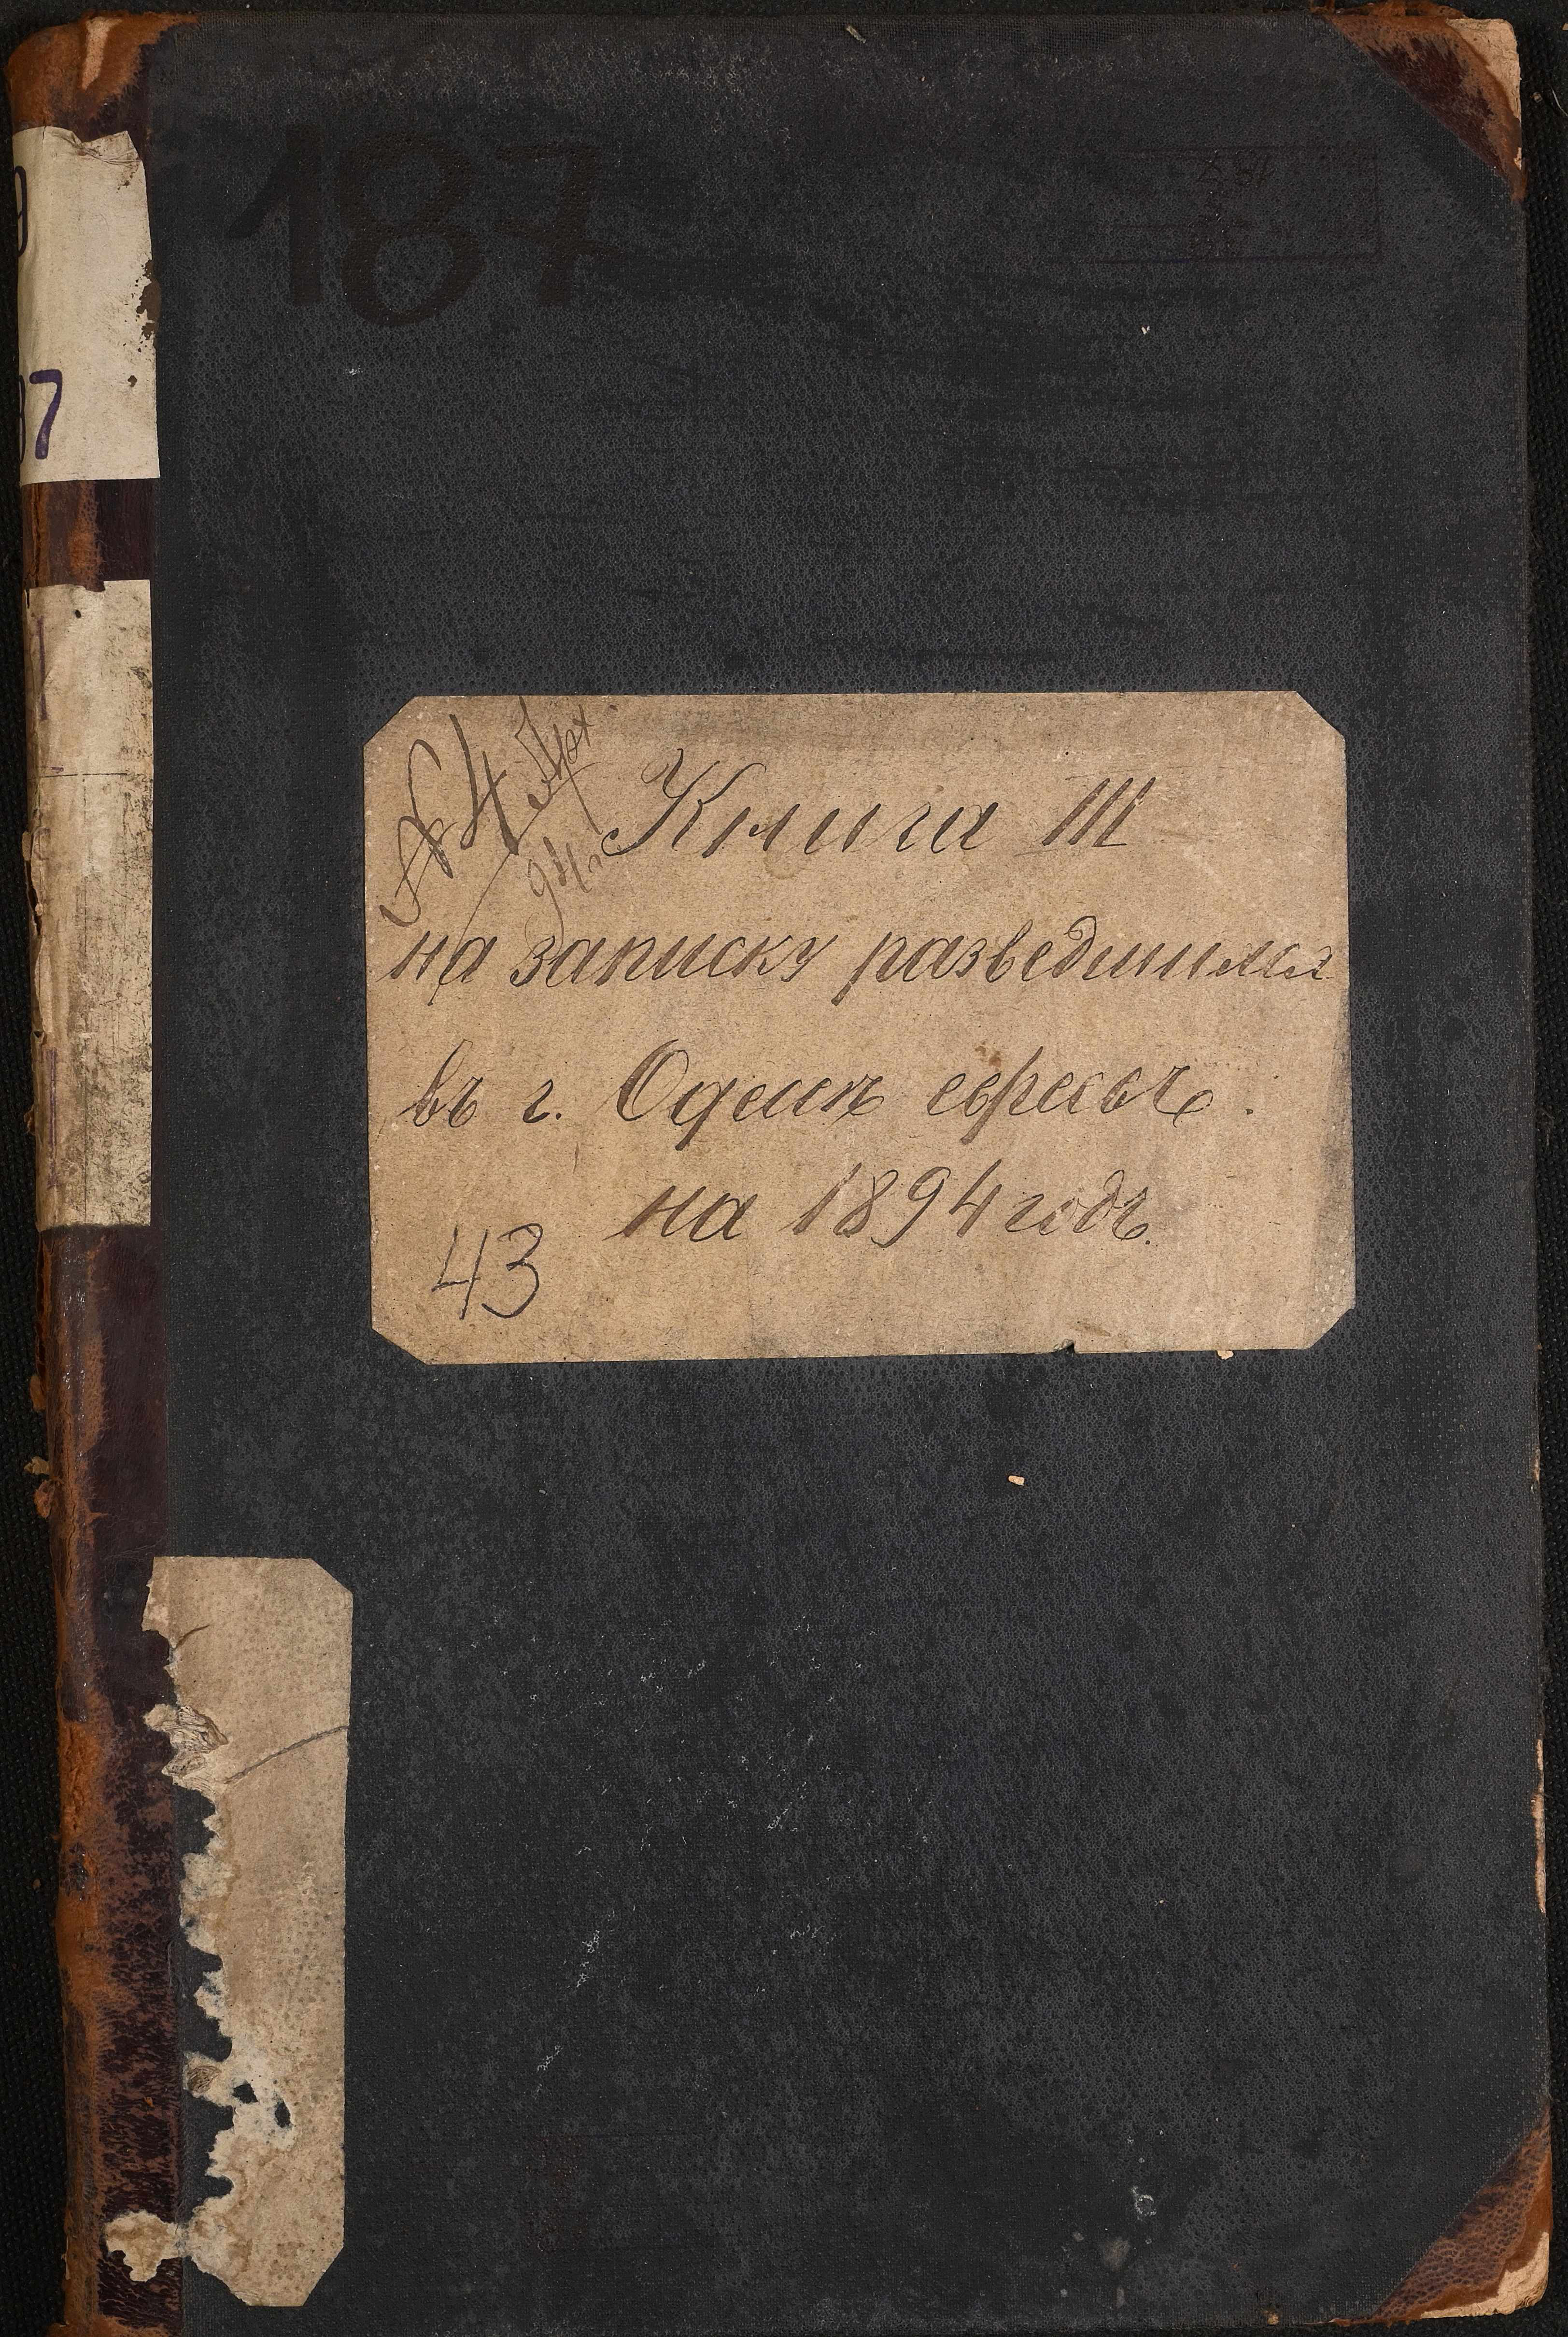 187
37
№ 4 Арх.
94 г.
Книга III
на записку разведшихся
въ г. Одессѣ евреевъ.
на 1894 годъ.
43